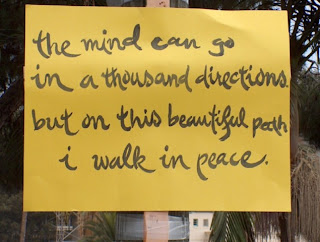 the mind can go
in a thousand directions.
but on this beautiful path
i walk in peace.